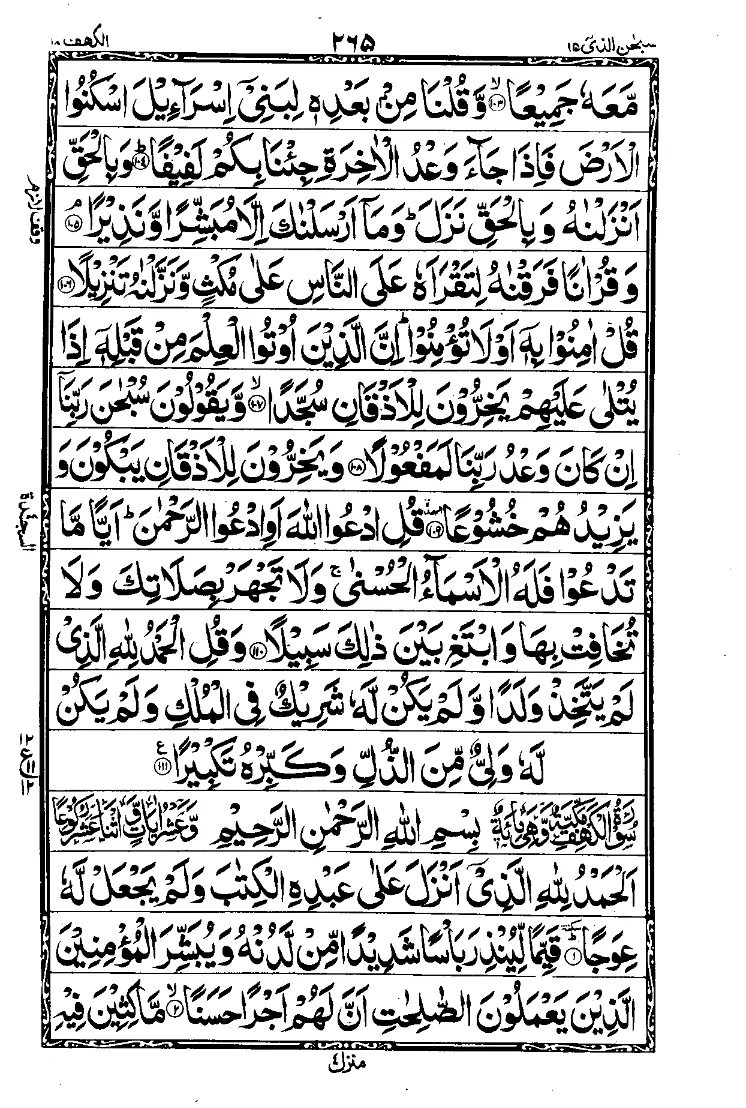 سبحٰن الذیٓ ۱۵
۲۶۵
الکھف ۱۸
مَّعَهٗ جَمِيْعًا ۙ‏﴿۱۰۳﴾ وَّقُلْنَا مِنْۢ بَعْدِهٖ لِبَنِىْۤ اِسْرَآءِيْلَ اسْكُنُوا
الْاَرْضَ فَاِذَا جَآءَ وَعْدُ الْاٰخِرَةِ جِئْنَا بِكُمْ لَفِيْفًا ؕ‏﴿۱۰۴﴾ وَبِالْحَقِّ
اَنْزَلْنٰهُ وَبِالْحَقِّ نَزَلَ ؕ وَمَاۤ اَرْسَلْنٰكَ اِلَّا مُبَشِّرًا وَّنَذِيْرًا ۘ‏﴿۱۰۵﴾
وَقُرْاٰنًا فَرَقْنٰهُ لِتَقْرَاَهٗ عَلَى النَّاسِ عَلٰى مُكْثٍ وَّنَزَّلْنٰهُ تَنْزِيْلًا ﴿۱۰۶﴾
قُلْ اٰمِنُوْا بِهٖۤ اَوْ لَا تُؤْمِنُوْا ؕ اِنَّ الَّذِيْنَ اُوْتُوا الْعِلْمَ مِنْ قَبْلِهٖۤ اِذَا
يُتْلٰى عَلَيْهِمْ يَخِرُّوْنَ لِلْاَذْقَانِ سُجَّدًا ۙ‏﴿۱۰۷﴾ وَّيَقُوْلُوْنَ سُبْحٰنَ رَبِّنَاۤ
اِنْ كَانَ وَعْدُ رَبِّنَا لَمَفْعُوْلًا ﴿۱۰۸﴾ وَيَخِرُّوْنَ لِلْاَذْقَانِ يَبْكُوْنَ وَ
يَزِيْدُهُمْ خُشُوْعًا ﴿۱۰۹﴾ السجدة قُلِ ادْعُوا اللّٰهَ اَوِ ادْعُوا الرَّحْمٰنَ ؕ اَيًّا مَّا
تَدْعُوْا فَلَهُ الْاَسْمَآءُ الْحُسْنٰى ۚ وَلَا تَجْهَرْ بِصَلَاتِكَ وَلَا
تُخَافِتْ بِهَا وَابْتَغِ بَيْنَ ذٰلِكَ سَبِيْلًا ﴿۱۱۰﴾ وَقُلِ الْحَمْدُ لِلّٰهِ الَّذِىْ
لَمْ يَتَّخِذْ وَلَدًا وَّلَمْ يَكُنْ لَّهٗ شَرِيْكٌ فِى الْمُلْكِ وَلَمْ يَكُنْ
لَّهٗ وَلِىٌّ مِّنَ الذُّلِّ وَكَبِّرْهُ تَكْبِيْرًا ﴿۱۱۱﴾ ع
سُوْرَةُ الْكَهْفِ مَكِّيَّةٌ وَّهِىَ مِائَةٌ بِسْمِ اللّٰهِ الرَّحْمٰنِ الرَّحِيْمِ وَّعَشْرُ اٰيَاتٍ وَّاثْنَا عَشَرَ رُكُوْعًا
اَلْحَمْدُ لِلّٰهِ الَّذِىْۤ اَنْزَلَ عَلٰى عَبْدِهِ الْكِتٰبَ وَلَمْ يَجْعَلْ لَّهٗ
عِوَجًا ؕ‏﴿۱﴾ قَيِّمًا لِّيُنْذِرَ بَاْسًا شَدِيْدًا مِّنْ لَّدُنْهُ وَيُبَشِّرَ الْمُؤْمِنِيْنَ
الَّذِيْنَ يَعْمَلُوْنَ الصّٰلِحٰتِ اَنَّ لَهُمْ اَجْرًا حَسَنًا ۙ‏﴿۲﴾ مَّاكِثِيْنَ فِيْهِ
وقف لازم
السجدة
ع
منزل ٤